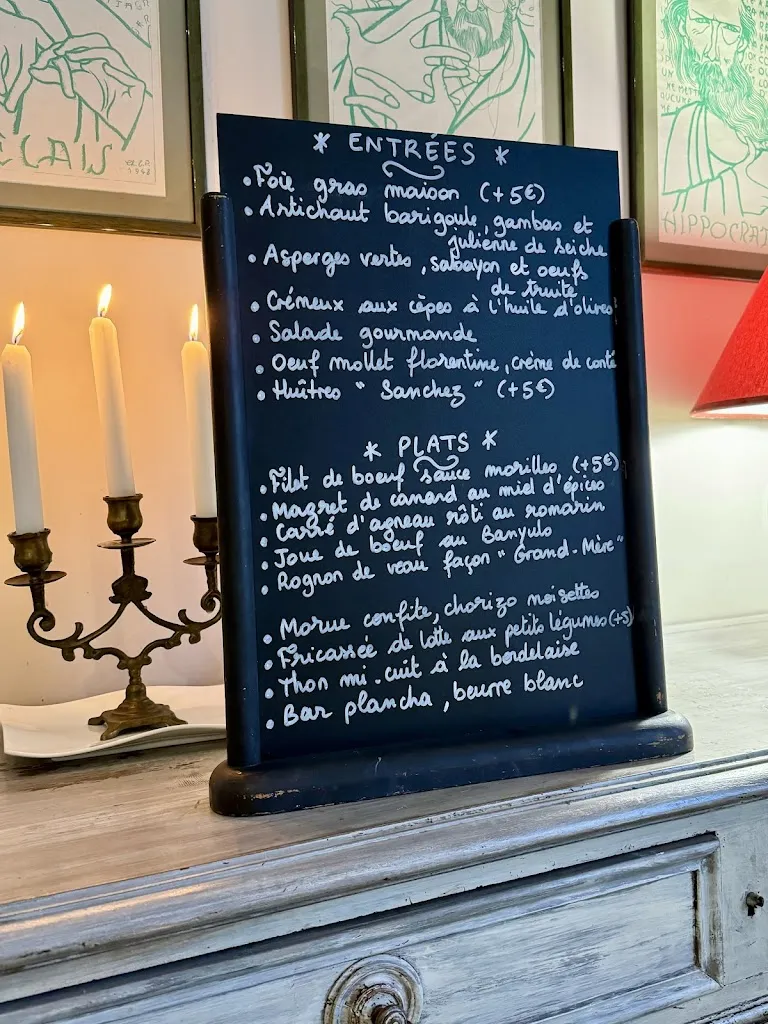 * ENTRÉES *
• Foie gras maison (+5€)
• Artichaut barigoule, gambas et
julienne de seiche
• Asperges vertes, sabayon et oeufs
de truite
• Crémeux aux cèpes à l'huile d'olives
• Salade gourmande
• Oeuf mollet florentine, crème de comté
• Huîtres " Sanchez " (+5€)
* PLATS *
• Filet de boeuf sauce morilles (+5€)
• Magret de canard au miel d'épices
• Carré d'agneau rôti au romarin
• Joue de boeuf au Banyuls
• Rognon de veau façon "Grand-Mère"
• Morue confite, chorizo noisettes
• Fricassée de lotte aux petits légumes (+5)
• Thon mi-cuit à la bordelaise
• Bar plancha, beurre blanc
ELAIS
HIPPOCRAT